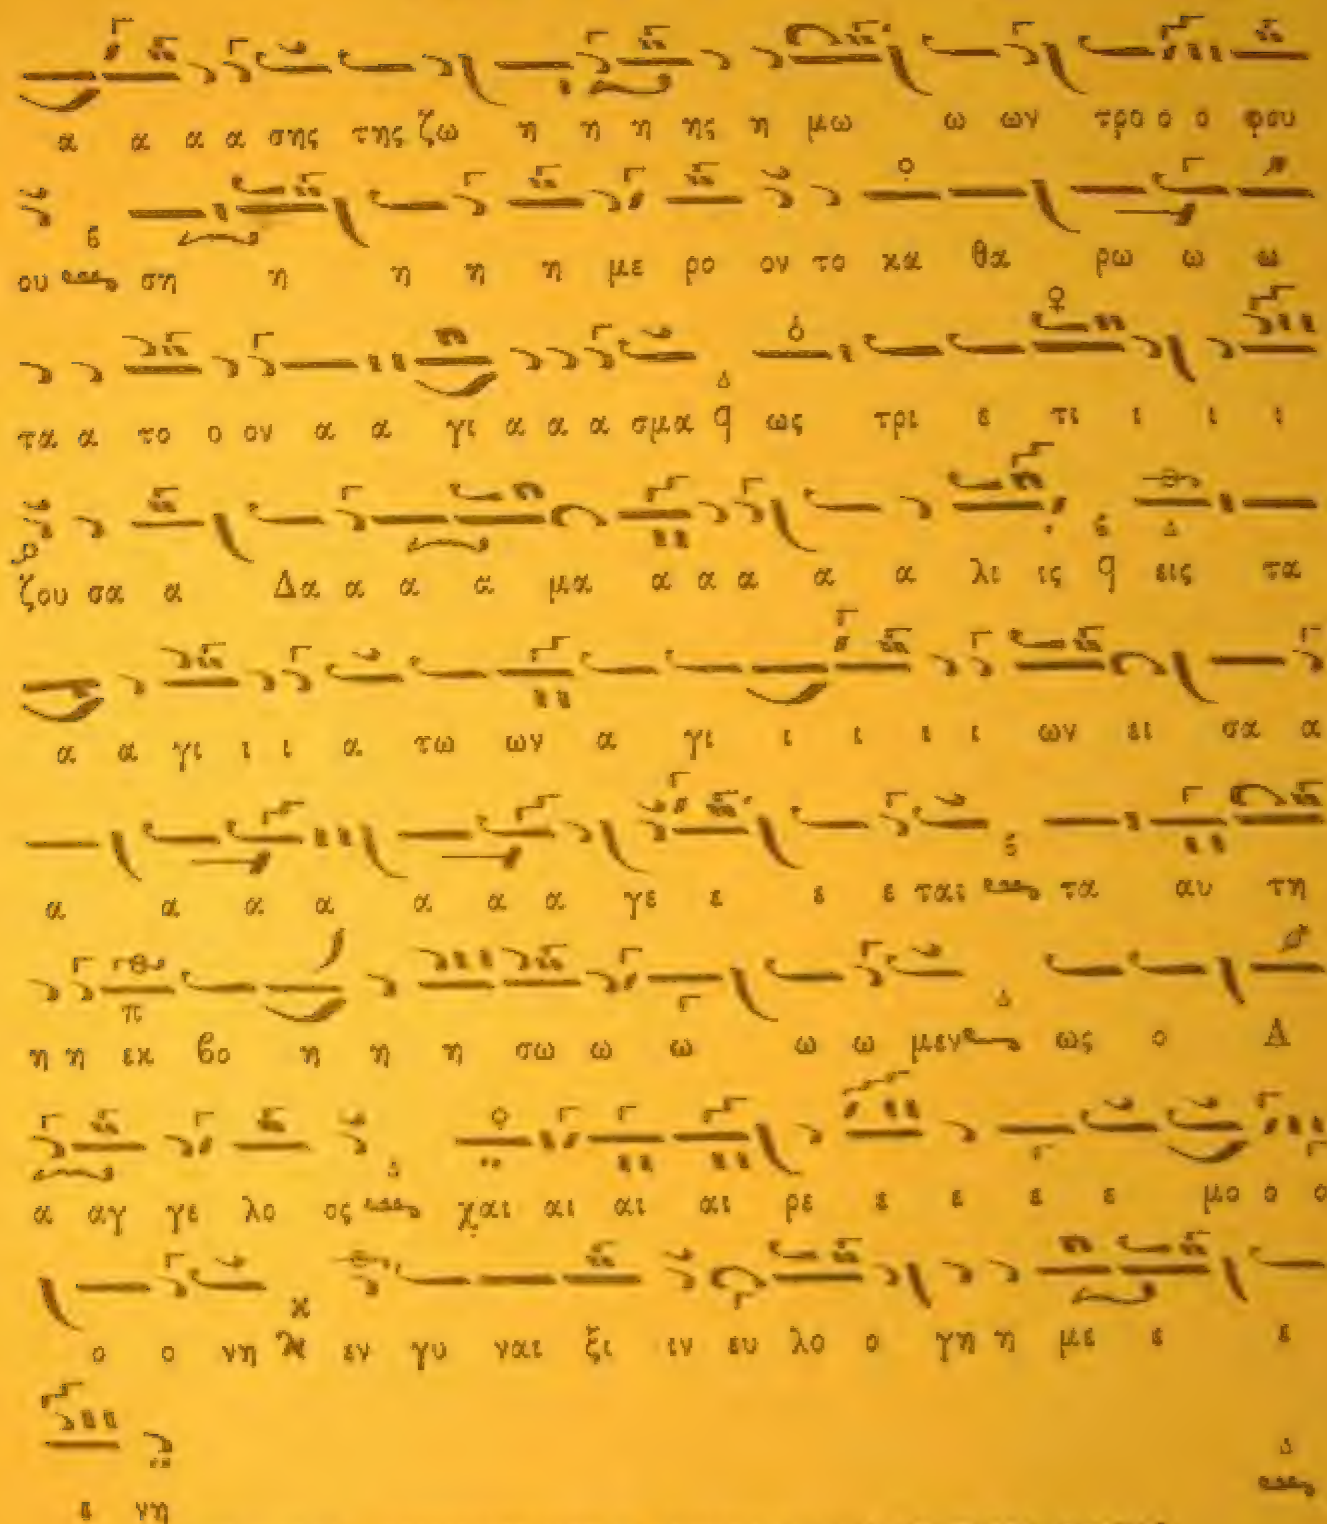 α α α α σης της ζω η η η ης η μω ω ων τρο ο ο φου
ου ση η η η η με ρο ον το κα θα ρω ω ω
τα α το ο ον α α γι α α α σμα ως τρι ε τι ι ι ι
ζου σα α Δα α α α μα α α α α α λι ις εις τα
α α γι ι ι α τω ων α γι ι ι ι ι ων ει σα α
α α α α α α α γε ε ε ε ται τα αυ τη
η η εκ βο η η η σω ω ω ω ω μεν ως ο Δ
α αγ γε λο ος χαι αι αι αι ρε ε ε ε ε μο ο ο
ο ο νη εν γυ ναι ξι ιν ευ λο ο γη η με ε ε
ε νη